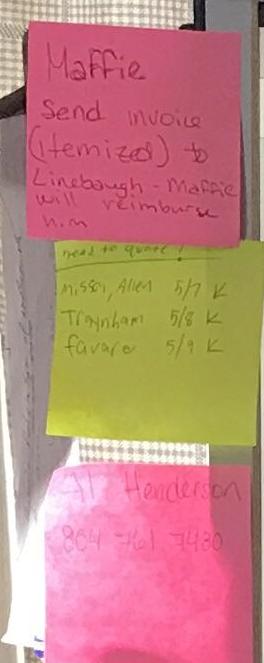 Maffie
Send invoice
(itemized) to
Linebaugh - Maffie
will reimburse
him
need to quote!
Allen 5/7 K
Traynham 5/8 K
favaro 5/9 K
Al Henderson
804 761 7430